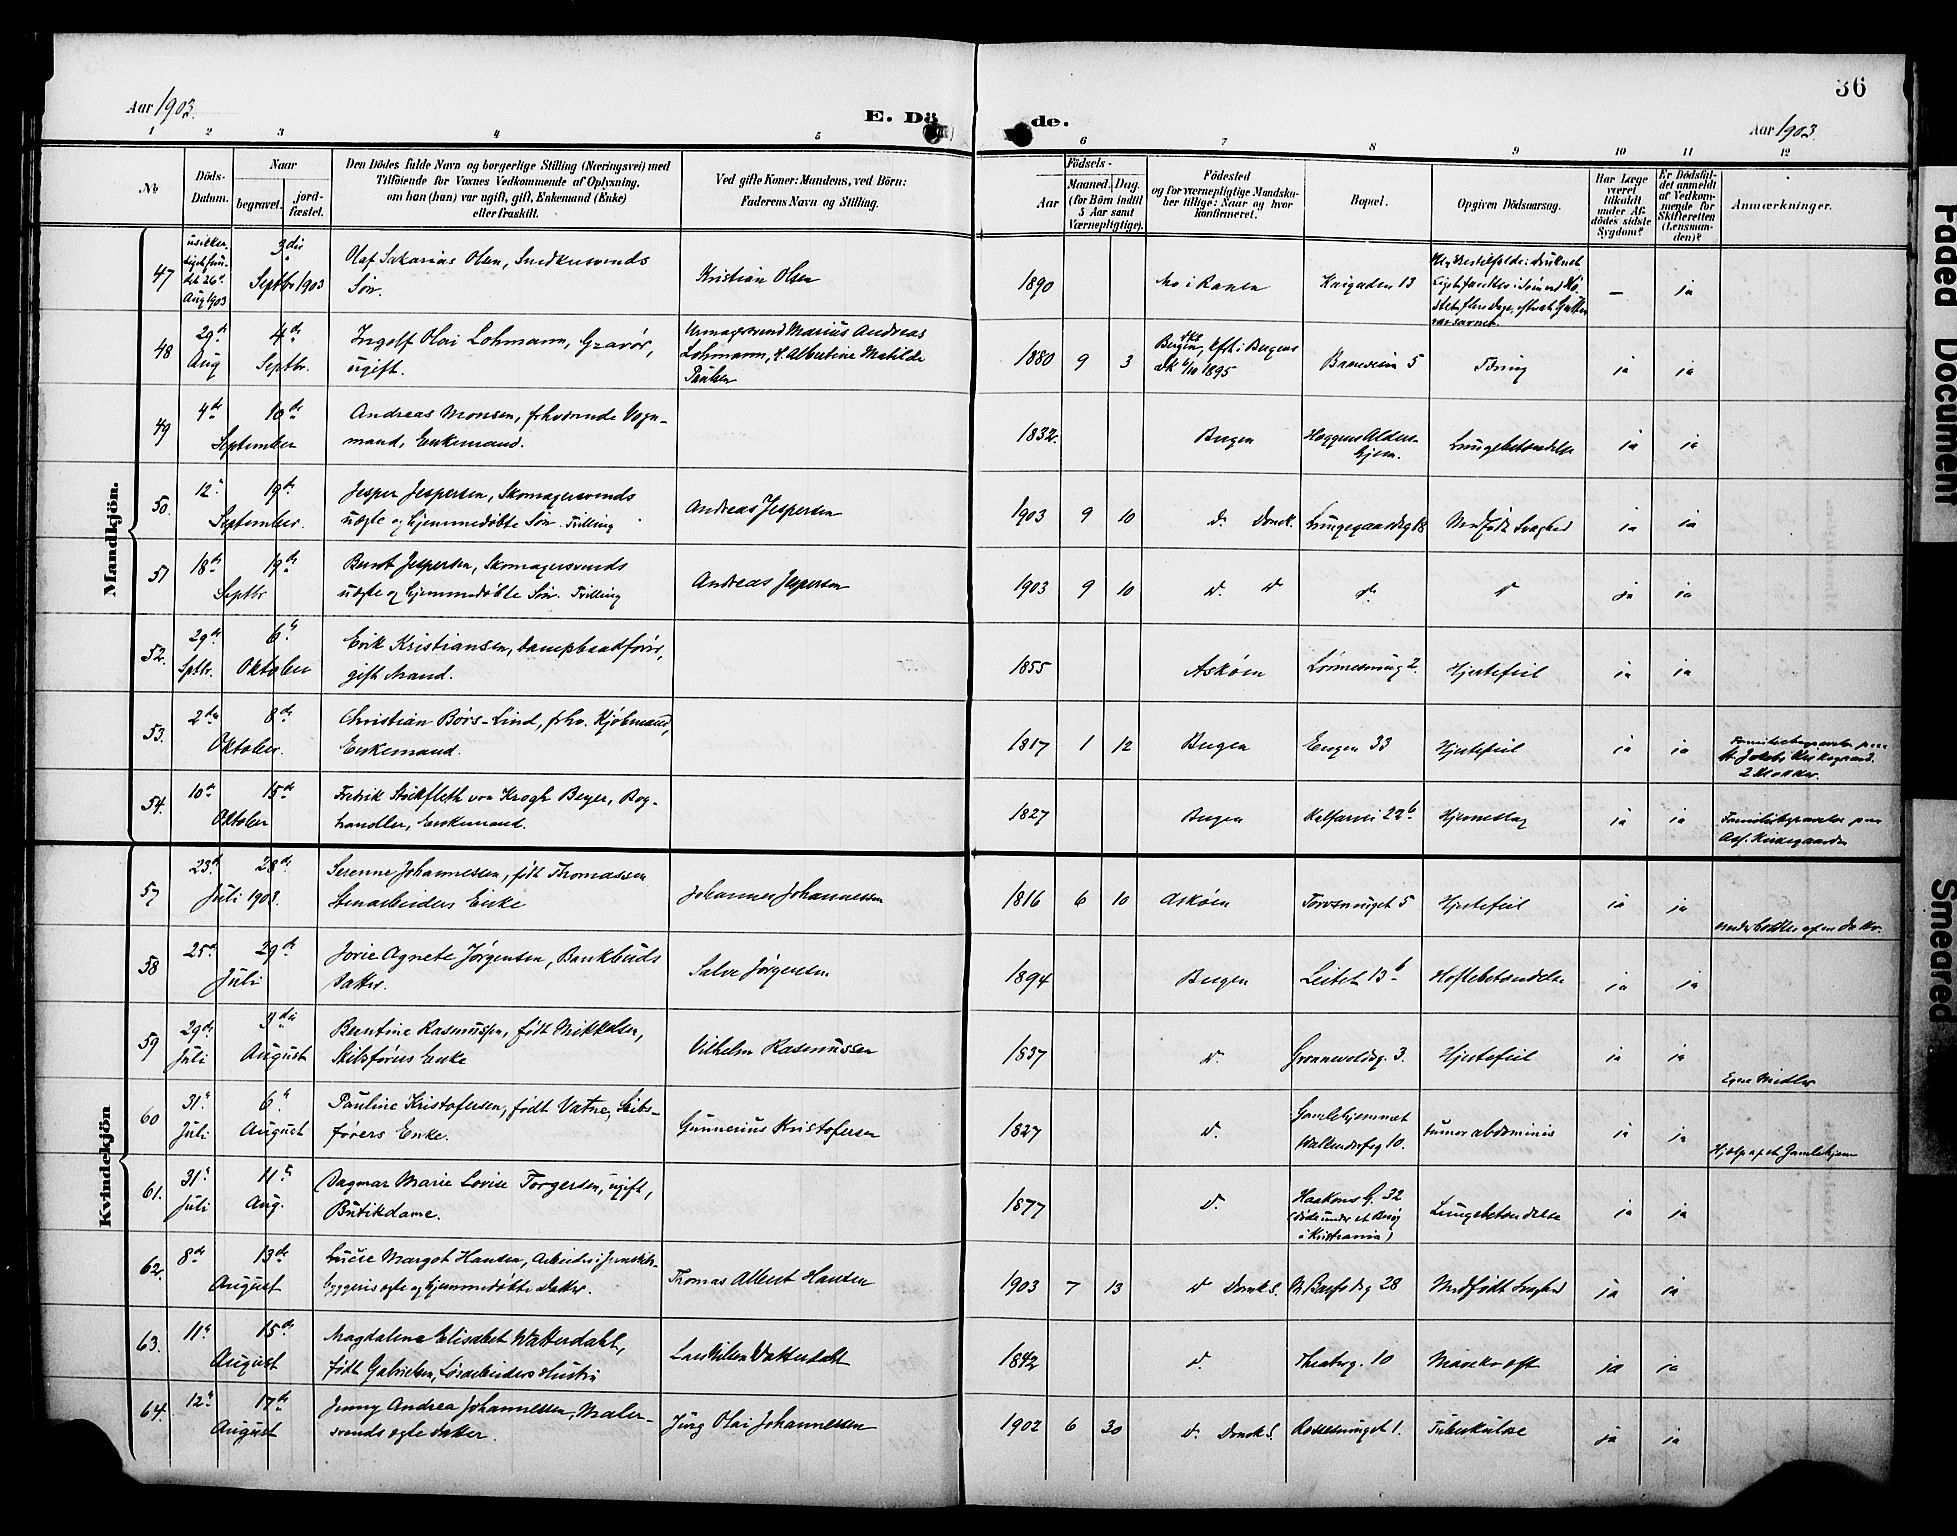 Aar 1903.
E. Dö
de.
36
Aar 1903
1 2 3 4 5 6 7 8 9 10 11 12
No
Döds-Datum.
Naar
begravet.
jordfæstet.
Den Dödes fulde Navn og borgerlige Stilling (Næringsvei) med
Tilföiende for Voxnes Vedkommende af Oplysning,
om han (hun) var ugift, gift, Enkemand (Enke)
eller fraskilt.
Ved gifte Koner: Mandens, ved Börn:
Faderens Navn og Stilling.
Födsels-
Aar
Maaned. Dag.
(for Börn indtil
5 Aar samt
Værnepligtige).
Födested
og for værnepligtige Mandsku-
ber tillige: Naar og hvor
konfirmeret.
Bopæl.
Opgiven Dödsaarsag.
Har Læge
været
tilkaldt
under Af-
dödes sidste
Sygdom?
Er Dödsfal-
det anmeldt
af Vedkom-
mende for
Skifteretten
(Lensman-
den)?
Anmærkninger.
Mandkjön.
47 26de Aug 1903 3die Septbr 1903 Olaf Sakarias Olsen, Snedkersvends
Søn. Kristian Olsen 1890 Mo i Ranen 13 — ja
48 29de Aug 4de Septbr. Ingolf Olai Lohmann, Gravør,
ugift. Urmagersvend Marius Andreas
Lohmann, & Albertine Matilde
Paulsen 1880 9 3 Bergen, kft. i Bergens
Dk 6/10 1895 5 Tæring ja ja
49 4de 10de September Andreas Monsen, forhværende Vogn-
mand, Enkemand. 1832. Bergen Lungebetændelse ja ja
50. 12te 19de September. Jesper Jespersen, Skomagersvends
uægte og hjemmedøbte Søn. Tvilling Andreas Jespersen 1903 9 10 d. Domk. Lungegaardsg 18 Medfødt Svaghed ja ja
51 18de 19de Septbr Bernt Jespersen, Skomagersvends
uægte og hjemmedøbte Søn. Tvilling Andreas Jespersen 1903 9 10 d. d d. d ja ja
52. 29de Septbr. 6te Oktober Erik Kristiansen, dampbaadfører,
gift Mand. 1855 Askøen 2. Hjertefeil ja ja
53. 2den 8de Oktober. Christian Børs-Lind, frhv. Kjøbmand,
Enkemand. 1817 1 12 Bergen Engen 33 Hjertefeil ja ja Familiebegravelse paa
St. Jakobs Kirkegaard.
2 Klokker.
54. 10de 15de Oktober Fredrik Stockfleth von Krogh Beyer, Bog-
handler, Enkemand. 1827 Bergen Kalfarvei 22b Hjerneslag ja ja Familiebegravelse paa
Ass. Kirkegaarden
Kvindekjön
57 23de Juli 1903. 28de Serenne Johannessen, født Thomassen
Stenarbeiders Enke Johannes Johannessen 1816 6 10 Askøen 5 Hjertefeil ja ja
58 25de 29de Juli Jovie Agnete Jørgensen, Bankbuds
Datter. Salve Jørgensen 1894 Bergen Leitet 13b Hoftebetændelse ja ja
59 29de Juli 3die August Berntine Rasmussen, født Mikkelsen,
Skibsførers Enke Vilhelm Rasmussen 1837 d. Grønnevoldsg. 3. Hjertefeil ja ja Egne Midler
60 31te Juli 6te August Pauline Kristofersen, født Vatne, Skibs-
førers Enke. Gunnerius Kristofersen 1827 d. Gamlehjemmet
Wallendorfsg 10. tumor abdominis ja ja Hjælp af et Gamlehjem
61. 31te Juli 11te Aug. Dagmar Marie Lovise Torgersen, ugift,
Butikdame. 1877 d. Haakons G. 32
(døde under et Besøg
i Kristiania) Lungebetændelse ja ja
62. 8de 13de August Lucie Margot Hansen, Arbeider i Jernskibs-
byggeris ægte og hjemmedøbte Datter. Thomas Albert Hansen 1903 7 13 d Domk S. 28 Medfødt Svaghed ja ja
63. 11te 15de August Magdalene Elisabet Watterdahl,
født Gabrielsen, Løsarbeiders Hustru Lars Nilsen Vatterdahl 1842 d. Theaterg. 10 Mavekræft ja ja
64. 12te 17de August Jenny Andrea Johannessen, Maler-
svends ægte Datter. Jürg Olai Johannessen 1902 6 30 d. Domk S. 1. Tuberkulose ja ja
Faded Document
Smeared